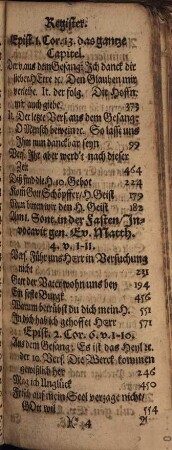 Register.
Epist. 1. Cor. 13. das gantze
Capitel.
Der v. aus dem Gesang: Ich danck dir
lieber HErre ꝛc. Den Glauben mir
verleihe. It. der folg. Die Hoffn.
mir auch giebe. 373
It. Der letze Vers. aus dem Gesang:
O Mensch beweine ꝛc. So lasst uns
Ihm nun danckbar seyn 99
Vers. Ihr aber werd't nach dieser
Zeit 464
Diß sind die H. 10. Gebot 224
Kom Gott Schöpffer/ H. Geist 179
Nun bitten wir den H. Geist 182
Am 1. Sont. in der Fasten/ In-
vocavit gen. Ev. Matth.
4. v. 1-11.
Vas. Führ uns HErr in Versuchung
nicht 231
Gott der Vater wohn uns bey 194
Ein feste Burgk 456
Warum betrübst du dich mein H. 551
In dich hab ich gehoffet HErr 571
Epist. 2. Cor. 6. v. 1-10.
Aus dem Gesang: Es ist das Heyl ꝛc.
der 10. Vers. Die Werck kommen
gewißlich her 246
Mag ich Unglück 450
Frisch auf mein Seel verzage nicht
GOtt wil 554